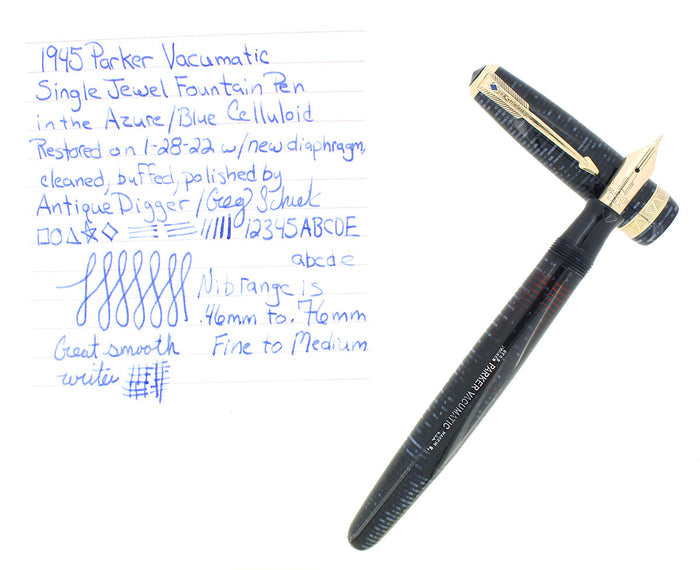 1945 Parker Vacumatic
Single Jewel Fountain Pen
in the Azure/Blue Celluloid
Restored on 1-28-22 w/new diaphragm,
cleaned, buffed, polished by
Antique Digger / Greg
12345 ABCDE
abcde
Nib range is
.46mm to .76mm
Great smooth Fine to Medium
writer
PARKER VACUMATIC